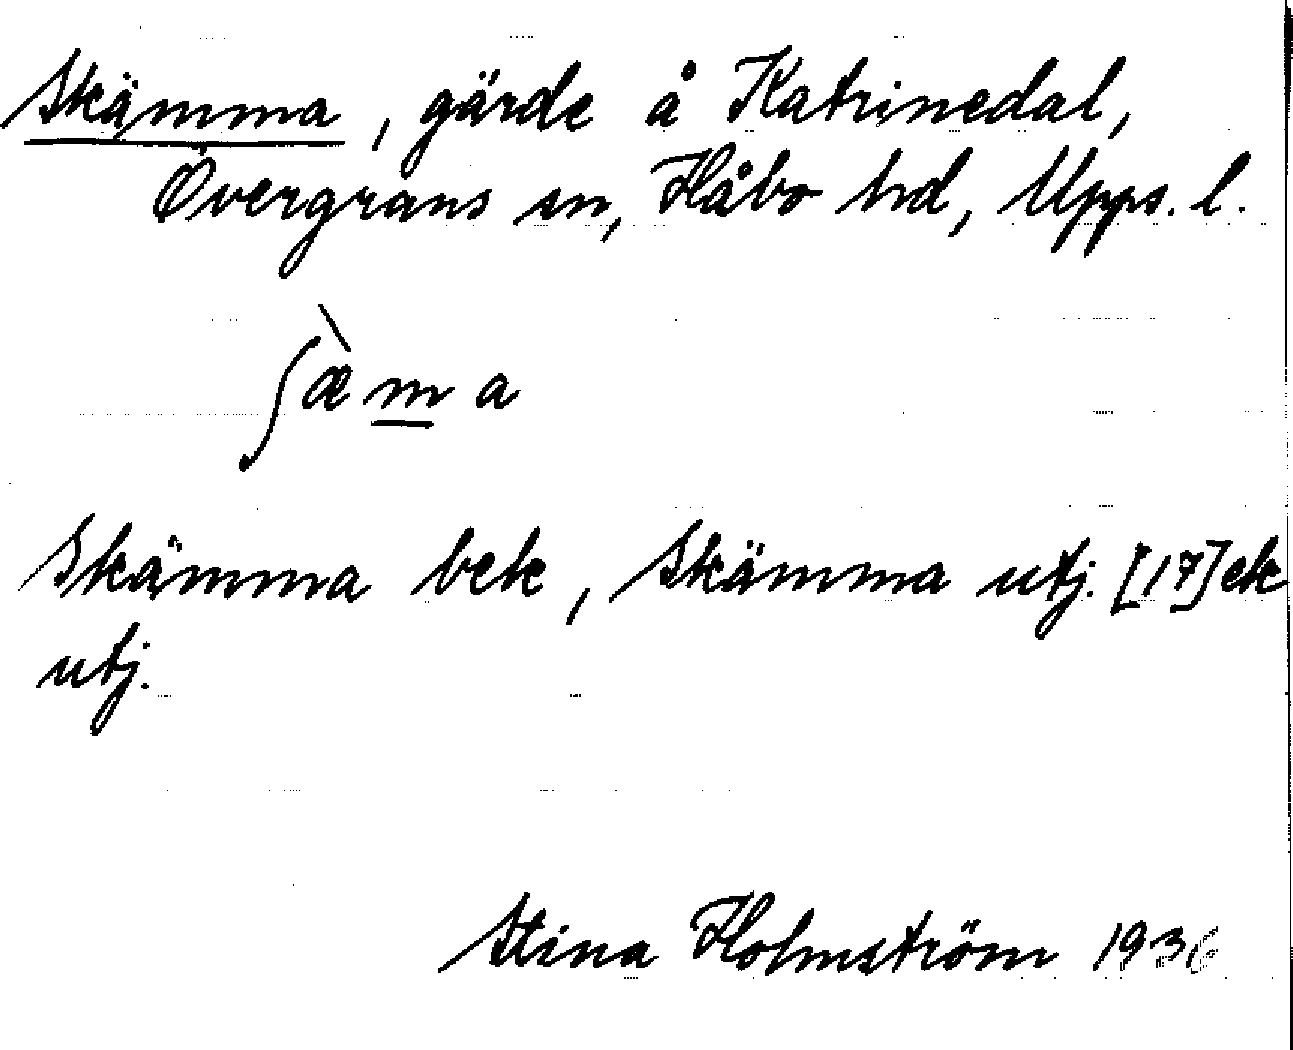 Skämma, gärde å Katrinedal,
Övergrans sn, Håbo hd, Upps. l.
ʃæ̀m̲a
Skämma bek, Skämma utj. [17] ek
utj.
Stina Holmström 1936